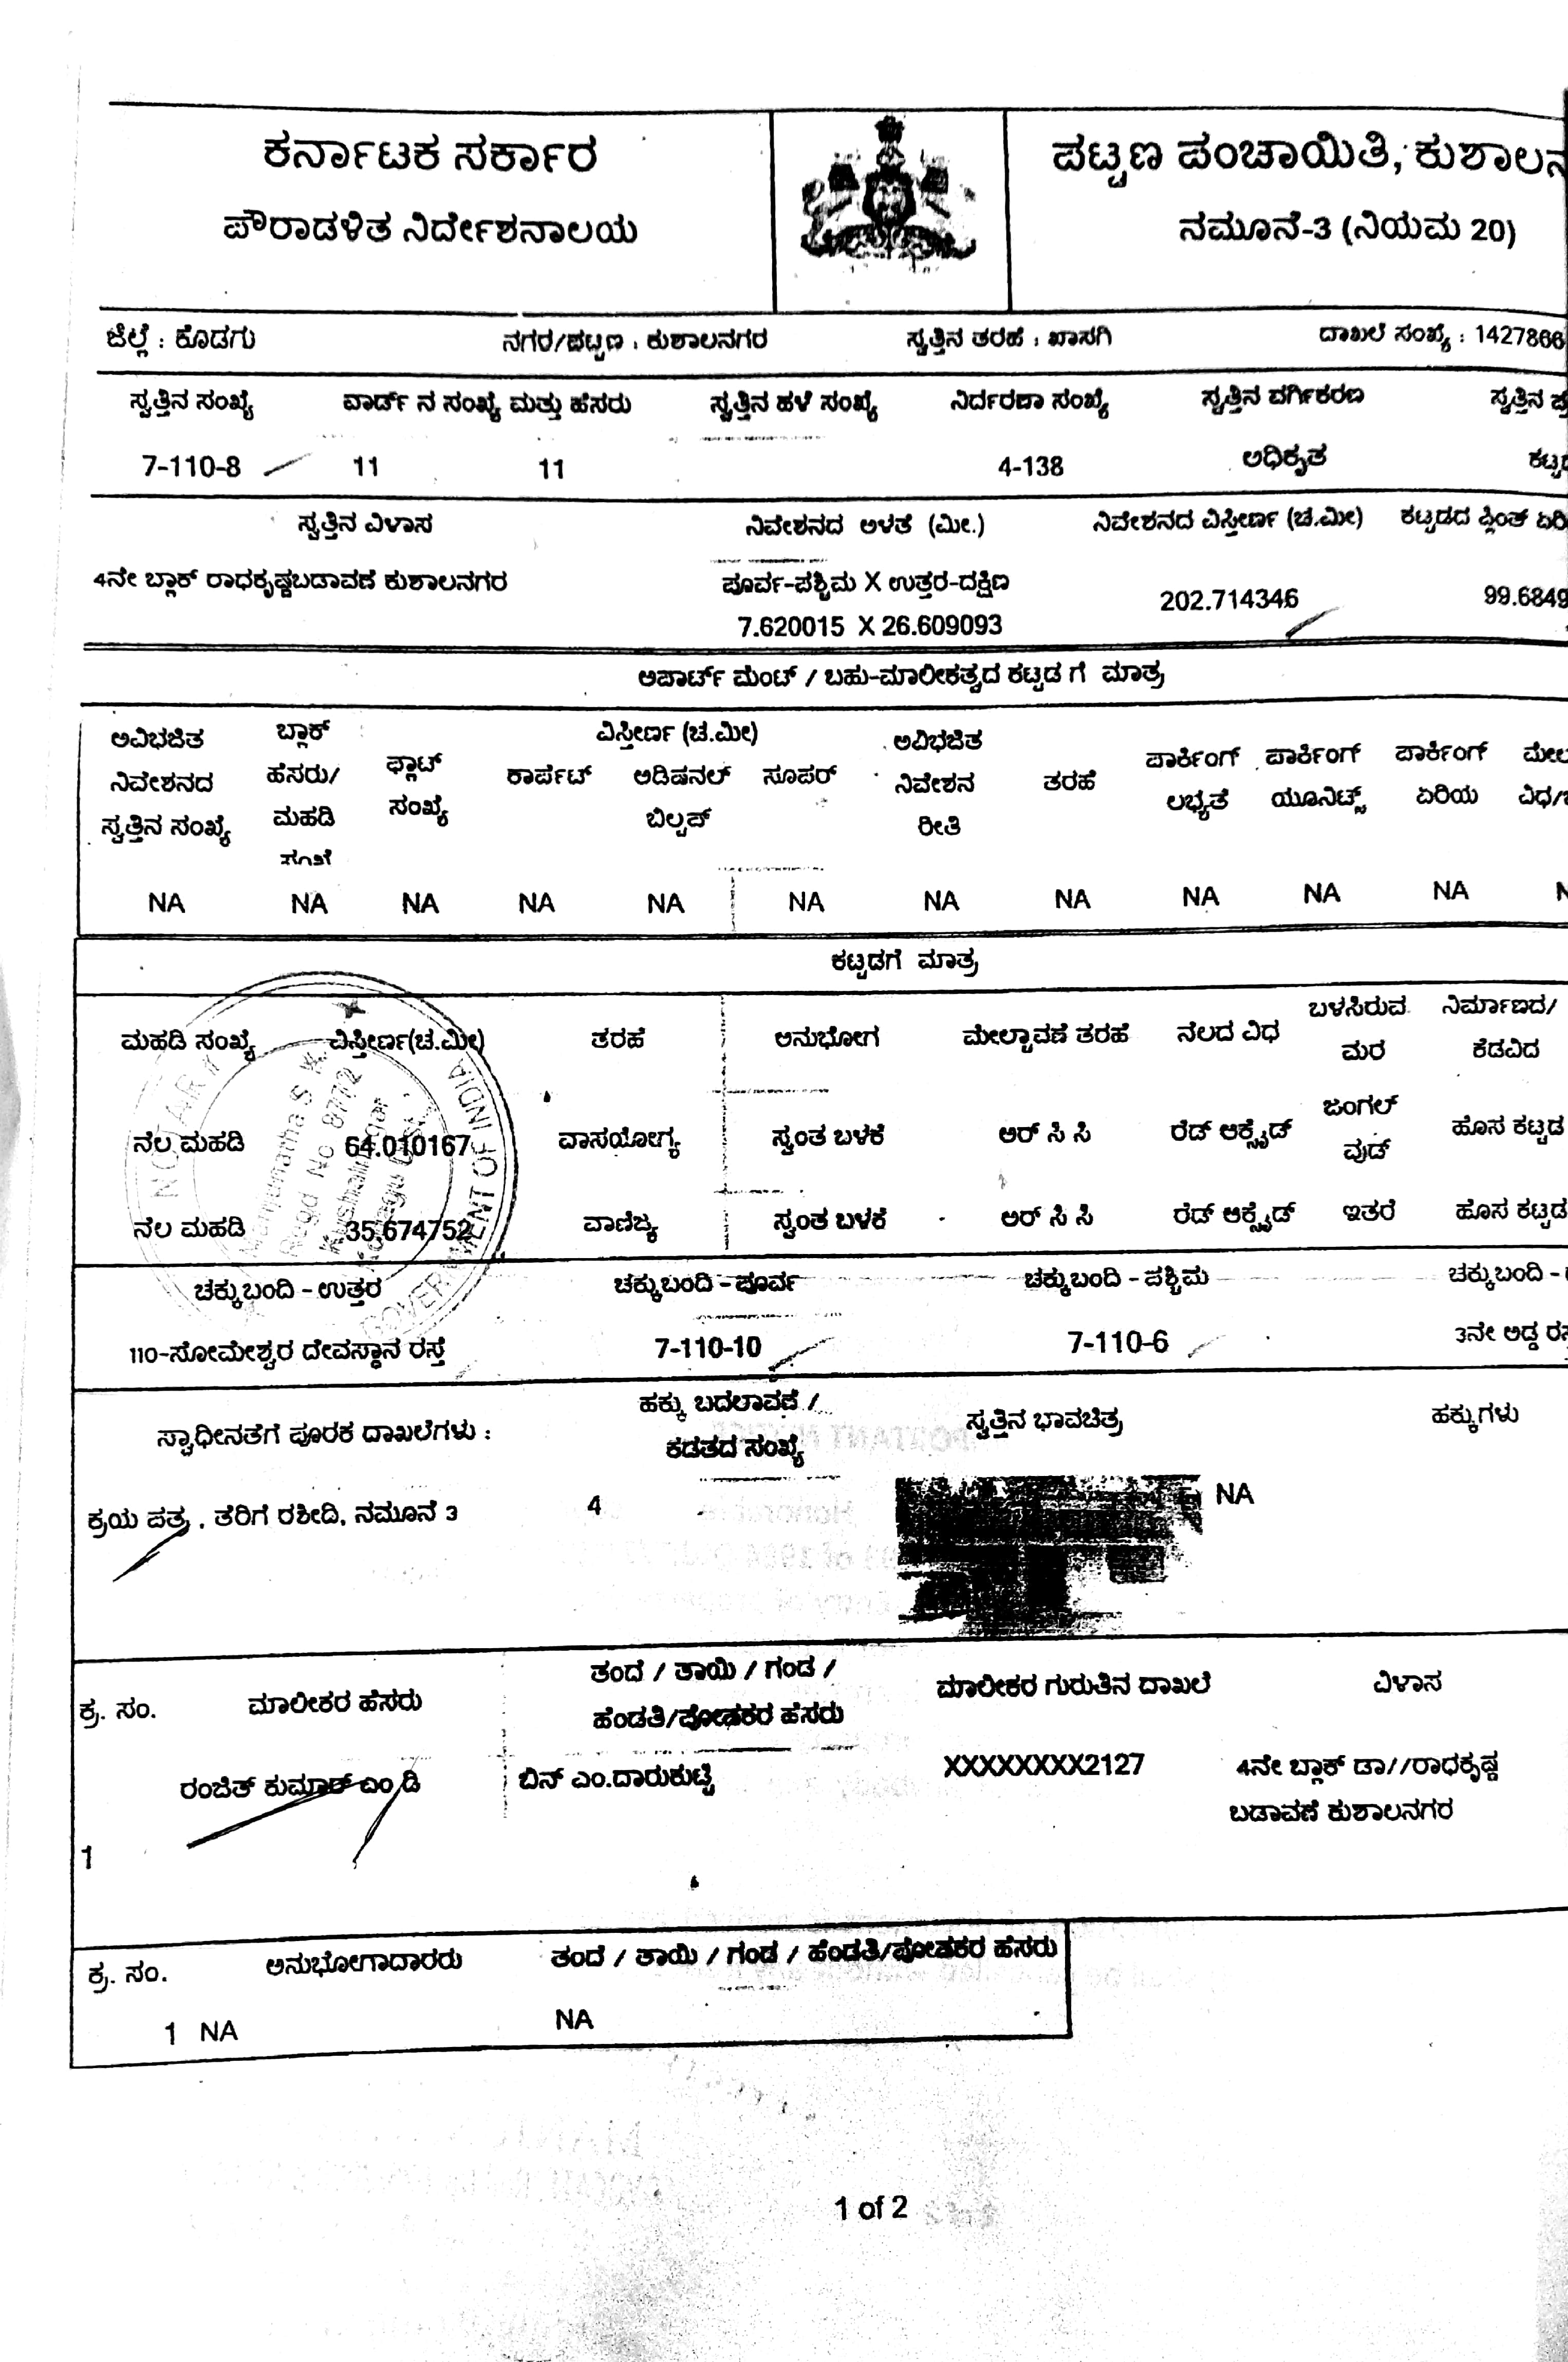 ಕರ್ನಾಟಕ ಸರ್ಕಾರ
ಪೌರಾಡಳಿತ ನಿರ್ದೇಶನಾಲಯ
ಪಟ್ಟಣ ಪಂಚಾಯಿತಿ, ಕುಶಾಲನ
ನಮೂನೆ-3 (ನಿಯಮ 20)
ಜಿಲ್ಲೆ : ಕೊಡಗು ನಗರ/ಪಟ್ಟಣ : ಕುಶಾಲನಗರ ಸ್ವತ್ತಿನ ತರಹೆ : ಖಾಸಗಿ ದಾಖಲೆ ಸಂಖ್ಯೆ : 1427866
ಸ್ವತ್ತಿನ ಸಂಖ್ಯೆ ವಾರ್ಡ್ ನ ಸಂಖ್ಯೆ ಮತ್ತು ಹೆಸರು ಸ್ವತ್ತಿನ ಹಳೆ ಸಂಖ್ಯೆ ನಿರ್ದರಣಾ ಸಂಖ್ಯೆ ಸ್ವತ್ತಿನ ವರ್ಗಿಕರಣ ಸ್ವತ್ತಿನ
7-110-8 11 11 4-138 ಅಧಿಕೃತ ಕಟ್ಟಡ
ಸ್ವತ್ತಿನ ವಿಳಾಸ ನಿವೇಶನದ ಅಳತೆ (ಮೀ.) ನಿವೇಶನದ ವಿಸ್ತೀರ್ಣ (ಚ.ಮೀ) ಕಟ್ಟಡದ ಪ್ಲಿಂತ್ ಏರಿ
4ನೇ ಬ್ಲಾಕ್ ರಾಧಕೃಷ್ಣಬಡಾವಣೆ ಕುಶಾಲನಗರ ಪೂರ್ವ-ಪಶ್ಚಿಮ X ಉತ್ತರ-ದಕ್ಷಿಣ 202.714346 99.6849
7.620015 X 26.609093
ಅಪಾರ್ಟ್ ಮೆಂಟ್ / ಬಹು-ಮಾಲೀಕತ್ವದ ಕಟ್ಟಡ ಗೆ ಮಾತ್ರ
ಅವಿಭಜಿತ ನಿವೇಶನದ ಸ್ವತ್ತಿನ ಸಂಖ್ಯೆ
ಬ್ಲಾಕ್ ಹೆಸರು/ ಮಹಡಿ ಸಂಖ್ಯೆ
ಫ್ಲಾಟ್ ಸಂಖ್ಯೆ
ವಿಸ್ತೀರ್ಣ (ಚ.ಮೀ)
ಕಾರ್ಪೆಟ್ ಅಡಿಷನಲ್ ಬಿಲ್ಟಪ್ ಸೂಪರ್
ಅವಿಭಜಿತ ನಿವೇಶನ ರೀತಿ
ತರಹೆ
ಪಾರ್ಕಿಂಗ್ ಲಭ್ಯತೆ
ಪಾರ್ಕಿಂಗ್ ಯೂನಿಟ್ಸ್
ಪಾರ್ಕಿಂಗ್ ಏರಿಯ
ಮೇಲ ವಿಧ/
NA NA NA NA NA NA NA NA NA NA NA N
ಕಟ್ಟಡಗೆ ಮಾತ್ರ
ಮಹಡಿ ಸಂಖ್ಯೆ ವಿಸ್ತೀರ್ಣ(ಚ.ಮೀ) ತರಹೆ ಅನುಭೋಗ ಮೇಲ್ಚಾವಣೆ ತರಹೆ ನೆಲದ ವಿಧ ಬಳಸಿರುವ ಮರ ನಿರ್ಮಾಣದ/ ಕೆಡವಿದ
ನೆಲ ಮಹಡಿ 64.010167 ವಾಸಯೋಗ್ಯ ಸ್ವಂತ ಬಳಕೆ ಆರ್ ಸಿ ಸಿ ರೆಡ್ ಆಕ್ಸೈಡ್ ಜಂಗಲ್ ವುಡ್ ಹೊಸ ಕಟ್ಟಡ
ನೆಲ ಮಹಡಿ 35.674752 ವಾಣಿಜ್ಯ ಸ್ವಂತ ಬಳಕೆ ಆರ್ ಸಿ ಸಿ ರೆಡ್ ಆಕ್ಸೈಡ್ ಇತರೆ ಹೊಸ ಕಟ್ಟಡ
NOTARY
Manjunatha S K
Regd No 8772
Kushalnagar
Kodagu Dist.
GOVERNMENT OF INDIA
ಚಕ್ಕುಬಂದಿ - ಉತ್ತರ ಚಕ್ಕುಬಂದಿ - ಪೂರ್ವ ಚಕ್ಕುಬಂದಿ - ಪಶ್ಚಿಮ ಚಕ್ಕುಬಂದಿ -
110-ಸೋಮೇಶ್ವರ ದೇವಸ್ಥಾನ ರಸ್ತೆ 7-110-10 7-110-6 3ನೇ ಅಡ್ಡ ರಸ್ತ
ಸ್ವಾಧೀನತೆಗೆ ಪೂರಕ ದಾಖಲೆಗಳು : ಹಕ್ಕು ಬದಲಾವಣೆ / ಕಡತದ ಸಂಖ್ಯೆ ಸ್ವತ್ತಿನ ಭಾವಚಿತ್ರ ಹಕ್ಕುಗಳು
ಕ್ರಯ ಪತ್ರ , ತೆರಿಗೆ ರಶೀದಿ, ನಮೂನೆ 3 4 NA
ಕ್ರ. ಸಂ. ಮಾಲೀಕರ ಹೆಸರು ತಂದೆ / ತಾಯಿ / ಗಂಡ / ಹೆಂಡತಿ/ಪೋಷಕರ ಹೆಸರು ಮಾಲೀಕರ ಗುರುತಿನ ದಾಖಲೆ ವಿಳಾಸ
1 ರಂಜಿತ್ ಕುಮಾರ್ ಎಂ,ಡಿ ಬಿನ್ ಎಂ.ದಾರುಕುಟ್ಟಿ XXXXXXXX2127 4ನೇ ಬ್ಲಾಕ್ ಡಾ//ರಾಧಕೃಷ್ಣ
ಬಡಾವಣೆ ಕುಶಾಲನಗರ
ಕ್ರ. ಸಂ. ಅನುಭೋಗಾದಾರರು ತಂದೆ / ತಾಯಿ / ಗಂಡ / ಹೆಂಡತಿ/ಪೋಷಕರ ಹೆಸರು
1 NA NA
1 of 2